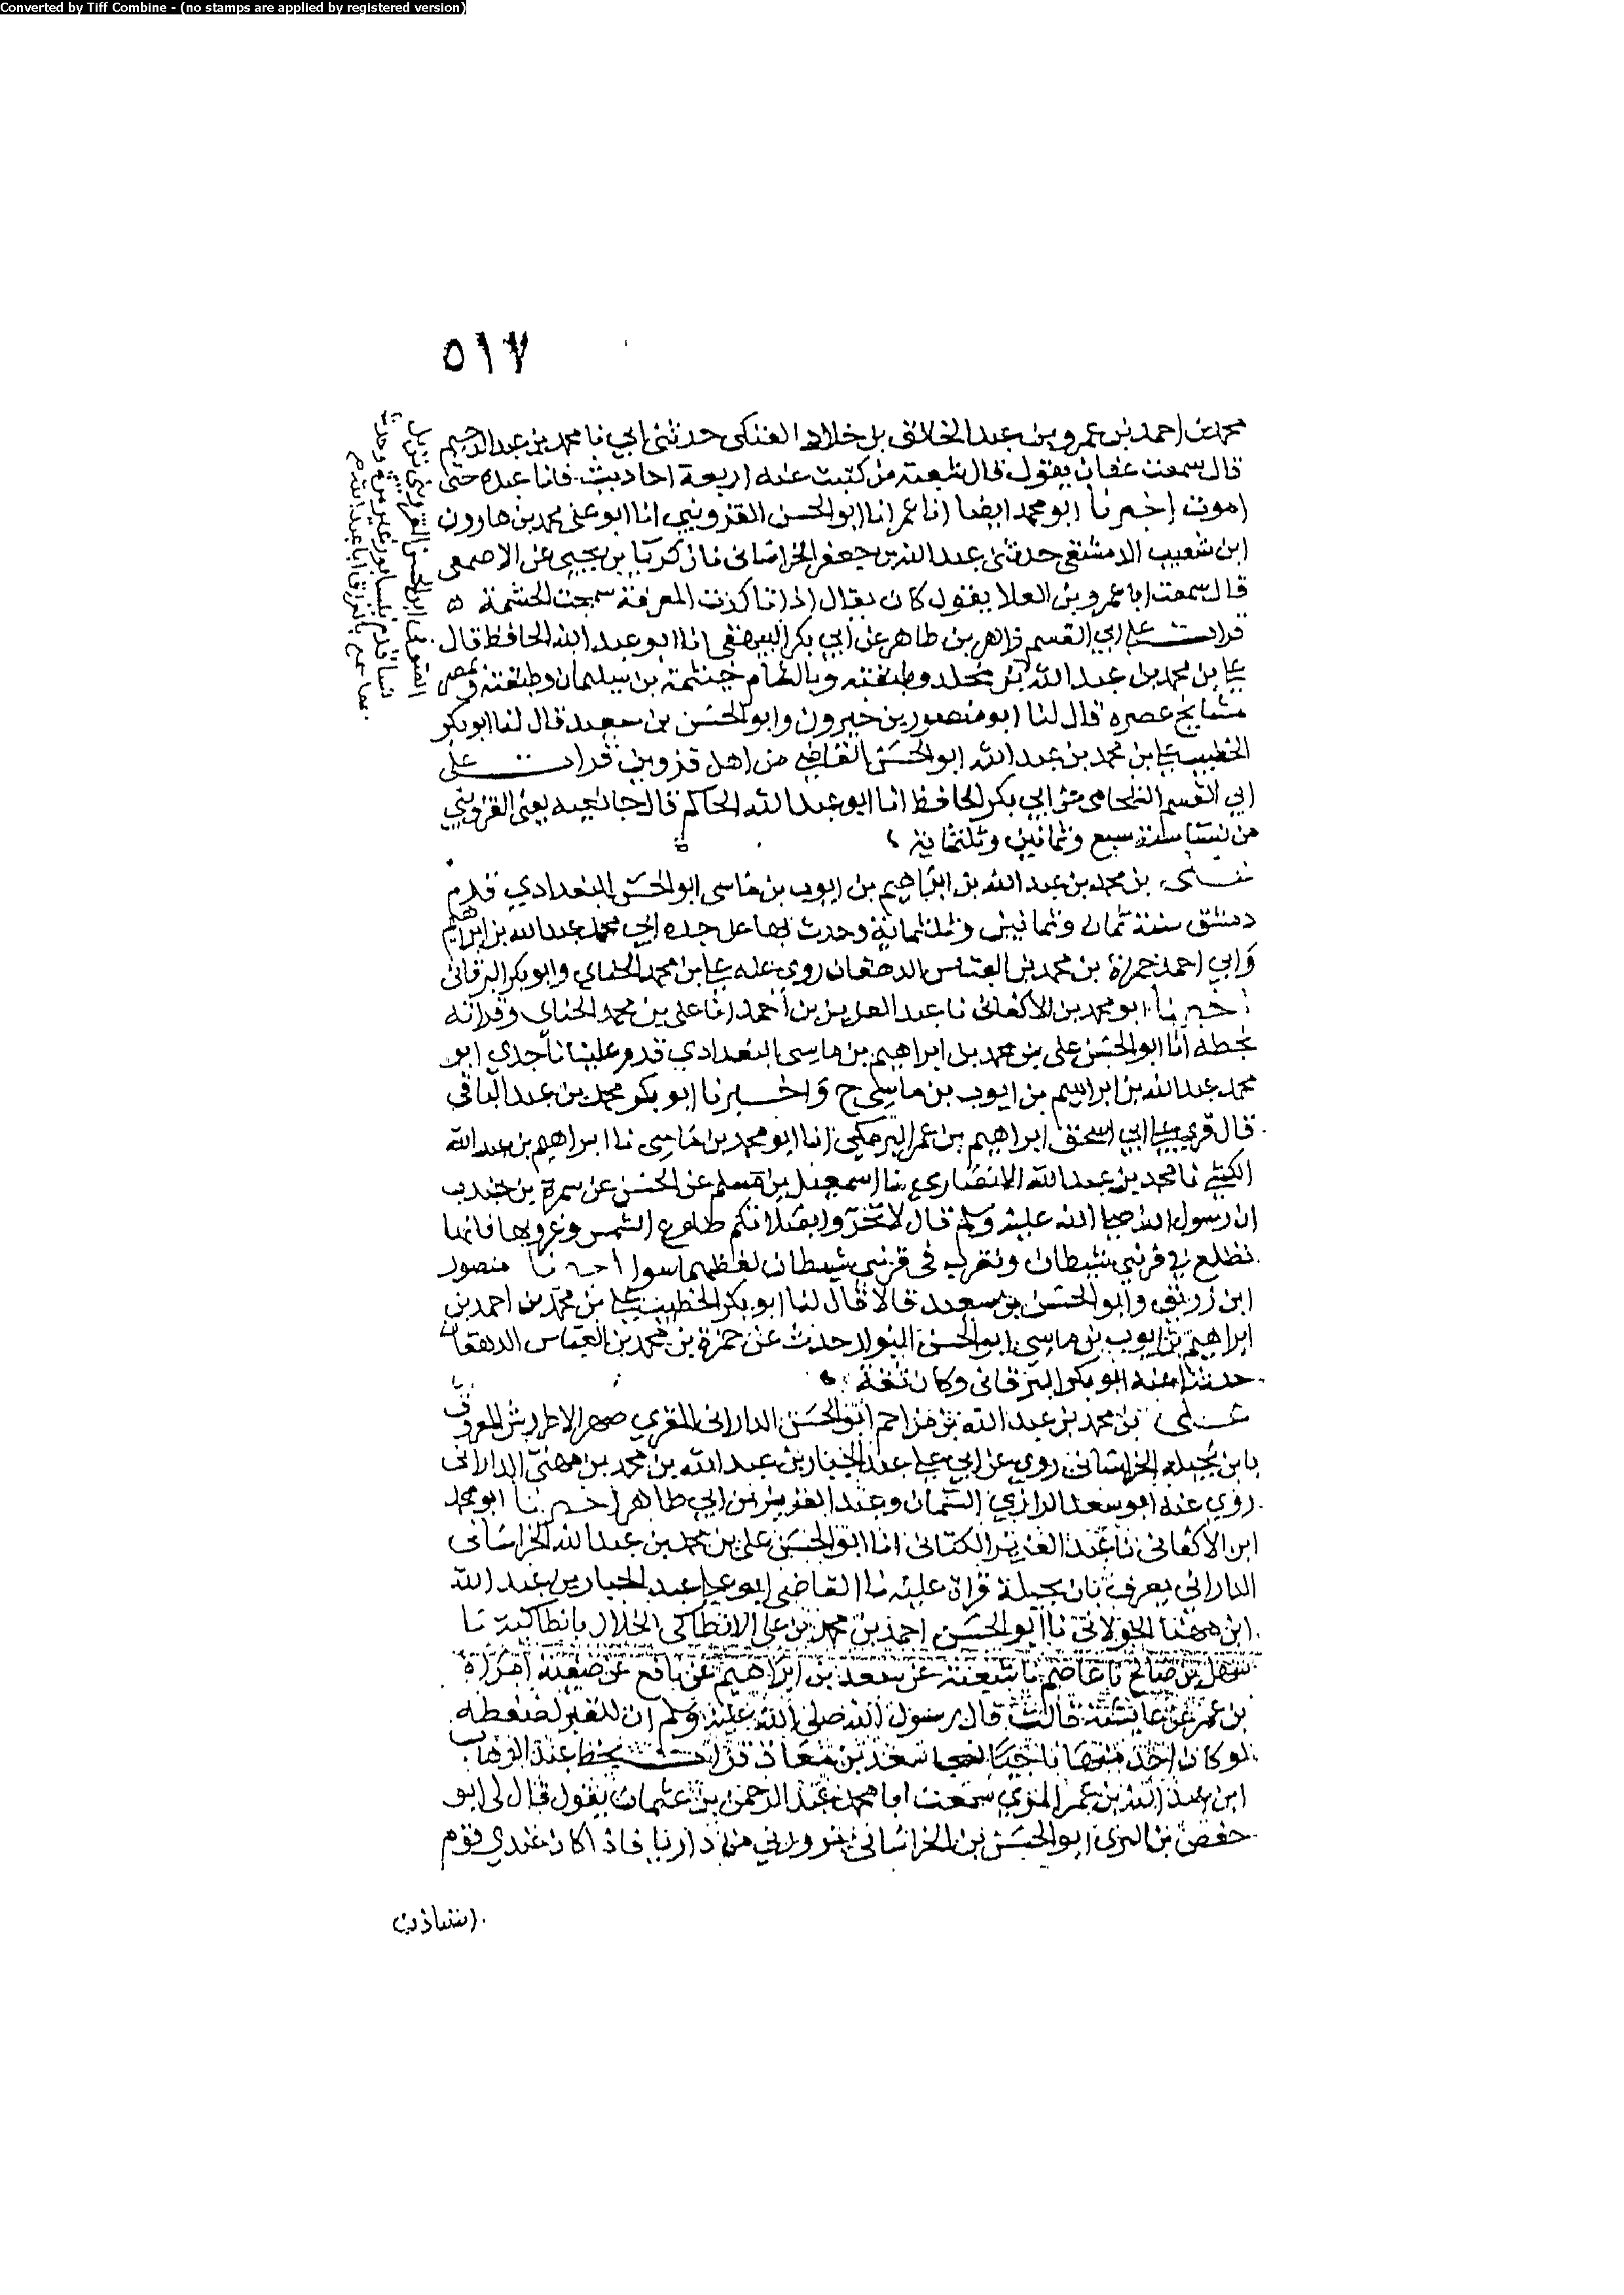 Converted by Tiff Combine - (no stamps are applied by registered version)
٥١٧
محمد بن احمد بن عمرو بن عبد الخالق بن خلاد العتكى حدثنى ابي نا محمد بن عبد الرحيم
قال سمعت عفان يقول قال شعبة من كتبت عنه اربعة احاديث فانا عبده حتى
اموت اخبرنا ابو محمد ايضا انا عمر انا ابو الحسن القزويني انا ابو على محمد بن هارون
ابن شعيب الدمشقى حدثنى عبد الله بن جعفر الخراسانى نا زكريا بن يحيى عن الاصمعى
قال سمعت ابا عمرو بن العلا يقول كان يقال اذا تاكدت المعرفة سمجت الحشمة ه
قرات على ابي القسم زاهر بن طاهر عن ابي بكر البيهقى انا ابو عبد الله الحافظ قال
على بن محمد بن عبد الله
بن مخلد وطبقته وبالشام خيثمة بن سليمان وطبقته وبمصر
مشايخ عصره قال لنا ابو منصور بن خيرون وابو الحسن بن سعيد قال لنا ابو بكر
الخطيب على بن محمد بن عبد الله ابو الحسن القاضى من اهل قزوين قرات على
ابي القسم الشحامى عن ابي بكر الحافظ انا ابو عبد الله الحاكم قال جانا نعيه يعنى القزويني
من نسا سنة سبع وثمانين وثلثماية
على بن محمد بن عبد الله بن ابراهيم بن ايوب بن ماسى ابو الحسن البغدادي قدم
دمشق سنة ثمان وثمانين وثلثماية وحدث بها عن جده ابي محمد عبد الله بن ابراهيم
وابي احمد حمزة بن محمد بن العباس الدهقان روى عنه على بن محمد الحنائي وابو بكر البرقانى
اخبرنا ابو محمد بن الاكفانى نا عبد العزيز بن احمد انا على بن محمد الحناى وقراته
بخطه انا ابو الحسن على بن محمد بن ابراهيم بن ماسى البغدادي قدم علينا نا جدي ابو
محمد عبد الله بن ابراهيم بن ايوب بن ماسى ح واخبرنا ابو بكر محمد بن عبد الباقى
قال قرى على ابي اسحق ابراهيم بن عمر البرمكي انا ابو محمد بن ماسى نا ابراهيم بن عبد الله
الكجى نا محمد بن عبد الله الانصارى نا اسمعيل بن مسلم عن الحسن عن سمرة بن جندب
ان رسول الله صلى الله عليه وسلم قال لا تتحروا بصلاتكم طلوع الشمس وغروبها فانها
تطلع في قرني شيطان وتغرب فى قرنى شيطان لفظهما سوا اخبرنا منصور
ابن زريق وابو الحسن بن سعيد قالا قال لنا ابو بكر الخطيب على بن محمد بن احمد بن
ابراهيم بن ايوب بن ماسى ابو الحسن البزاز حدث عن حمزة بن محمد بن العباس الدهقان
حدثنا عنه ابو بكر البرقانى وكان ثقة ه
على بن محمد بن عبد الله بن مزاحم ابو الحسن الدارانى المقري صهر الاطروش المعروف
بابن بجيلة الخراسانى روي عن ابي على عبد الجبار بن عبد الله بن محمد بن مهنى الدارانى
روى عنه ابو سعد الرازي السمان وعبد العزيز بن ابي طاهر اخبرنا ابو محمد
ابن الاكفانى نا عبد العزيز الكتانى انا ابو الحسن على بن محمد بن عبد الله الخراسانى
الدارانى يعرف بابن بجيلة قراة عليه نا القاضى ابو على عبد الجبار بن عبد الله
ابن مهنا الخولانى نا ابو الحسن احمد بن محمد بن على الانطاكى الخلال بانطاكية نا
سهل بن صالح نا عاصم نا شعبة عن سعد بن ابراهيم عن نافع عن صفية امراة
بن عمر عن عايشة قالت قال رسول الله صلى الله عليه وسلم ان للقبر لضغطة
لو كان احد منها ناجيا لنجا سعد بن معاذ قرات بخط عبد الوهاب
ابن عبد الله بن عمر المري سمعت ابا محمد عبد الرحمن بن عثمان يقول قال لى ابو
حفص بن البري ابو الحسن بن الخراسانى يزورني من داريا فاذا كان عندي قوم
استاذن